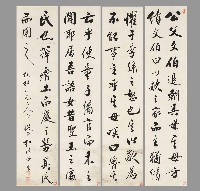 公父文伯退朝朝其母其母方
績文伯曰以歜之家而主猶績
懼干季孫之怒也其以歜為
不能事主乎其母嘆曰魯其
亡乎使僮子備官而未之
聞耶居吾語女昔聖王之處
民也擇瘠土而處之勞其民
而用之